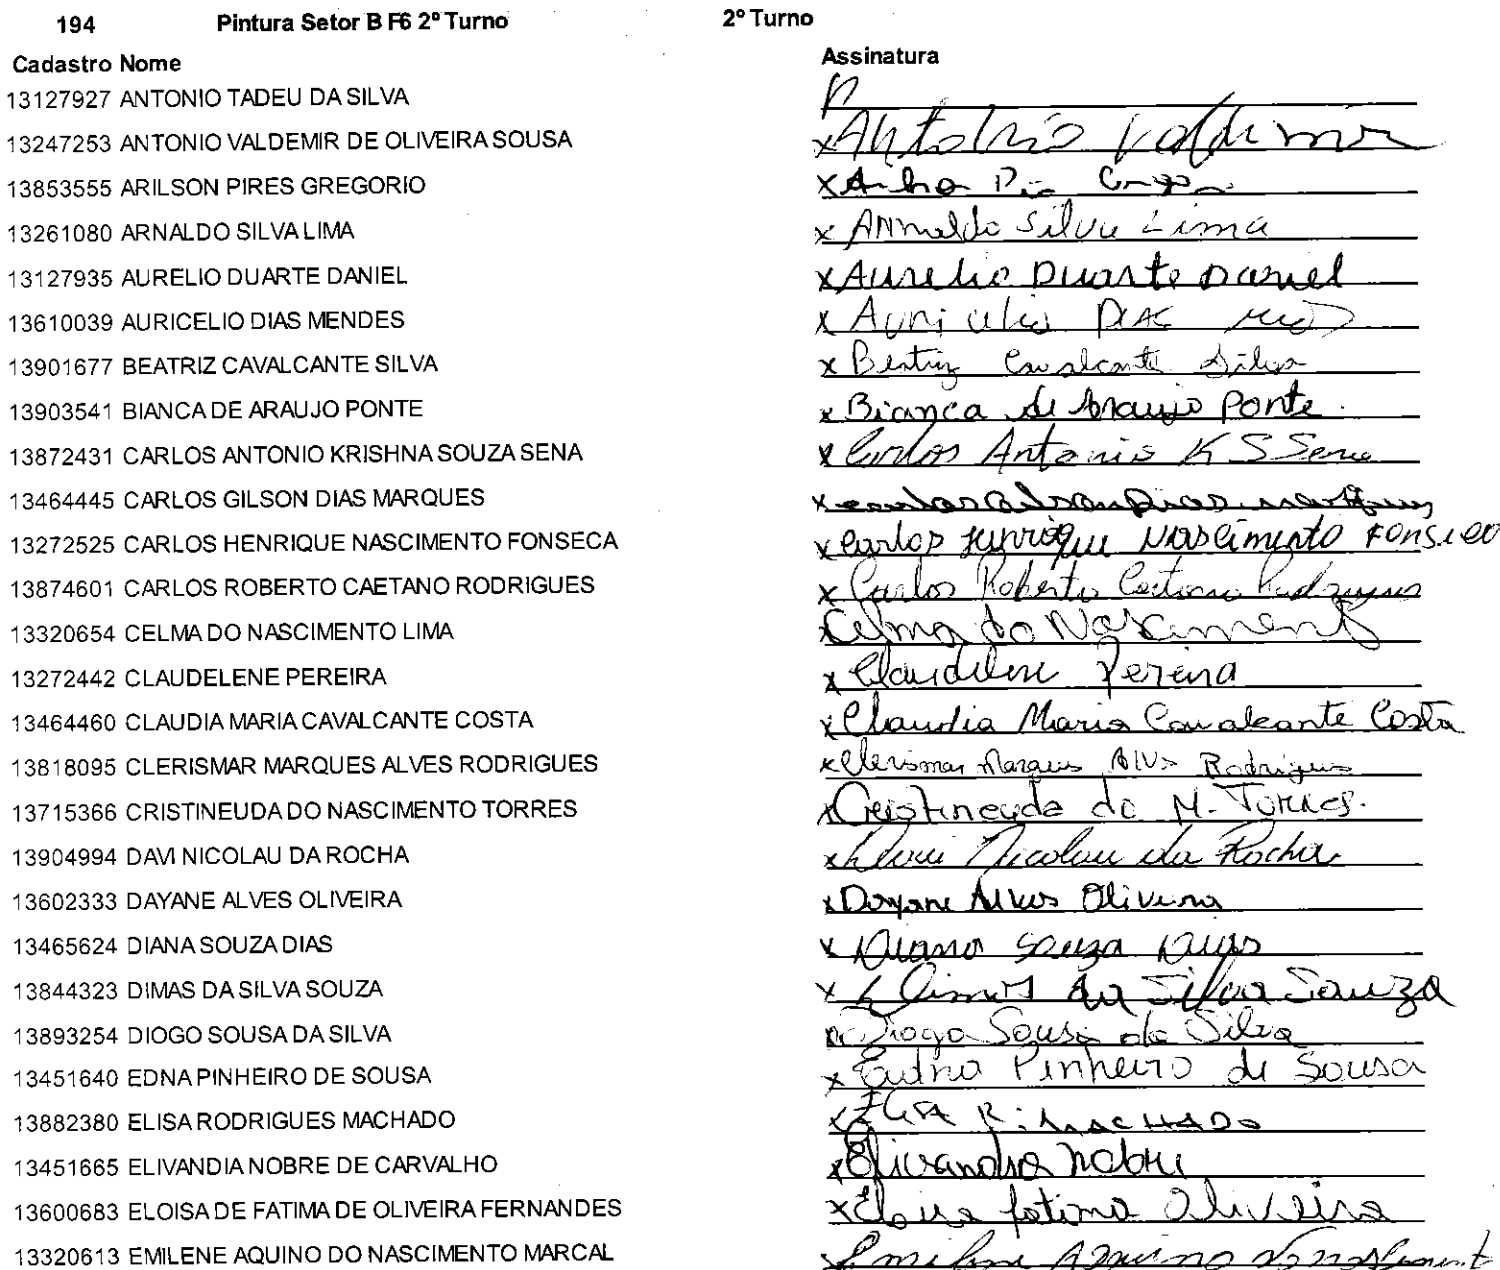 194 Pintura Setor B F6 2º Turno 2º Turno
Cadastro Nome Assinatura
13127927 ANTONIO TADEU DA SILVA
13247253 ANTONIO VALDEMIR DE OLIVEIRA SOUSA x Antonio Valdimir
13853555 ARILSON PIRES GREGORIO x
13261080 ARNALDO SILVA LIMA x Arnaldo Silva Lima
13127935 AURELIO DUARTE DANIEL x Aurelio Duarte Daniel
13610039 AURICELIO DIAS MENDES x Auricelio Dias
13901677 BEATRIZ CAVALCANTE SILVA x Beatriz Cavalcante Silva
13903541 BIANCA DE ARAUJO PONTE x Bianca de Araujo Ponte.
13872431 CARLOS ANTONIO KRISHNA SOUZA SENA x Carlos Antonio K S Sena
13464445 CARLOS GILSON DIAS MARQUES x Dias
13272525 CARLOS HENRIQUE NASCIMENTO FONSECA x Carlos Henrique Nascimento Fonseca
13874601 CARLOS ROBERTO CAETANO RODRIGUES x Carlos Roberto Caetano Rodrigues
13320654 CELMA DO NASCIMENTO LIMA x Celma do Nascimento
13272442 CLAUDELENE PEREIRA x Claudilene Pereira
13464460 CLAUDIA MARIA CAVALCANTE COSTA x Claudia Maria Cavalcante Costa
13818095 CLERISMAR MARQUES ALVES RODRIGUES x Clerismar Marques Alves Rodrigues
13715366 CRISTINEUDA DO NASCIMENTO TORRES x Cristineuda do N. Torres.
13904994 DAVI NICOLAU DA ROCHA x Davi Nicolau da Rocha
13602333 DAYANE ALVES OLIVEIRA x Dayane Alves Oliveira
13465624 DIANA SOUZA DIAS x Diana Souza Dias
13844323 DIMAS DA SILVA SOUZA x Dimas da Silva Souza
13893254 DIOGO SOUSA DA SILVA Diogo Sousa da Silva
13451640 EDNA PINHEIRO DE SOUSA x Edna Pinheiro de Sousa
13882380 ELISA RODRIGUES MACHADO x Elisa R. Machado
13451665 ELIVANDIA NOBRE DE CARVALHO x Elivandia Nobre
13600683 ELOISA DE FATIMA DE OLIVEIRA FERNANDES x Eloisa fatima Oliveira
13320613 EMILENE AQUINO DO NASCIMENTO MARCAL x Emilene Aquino do nascimento